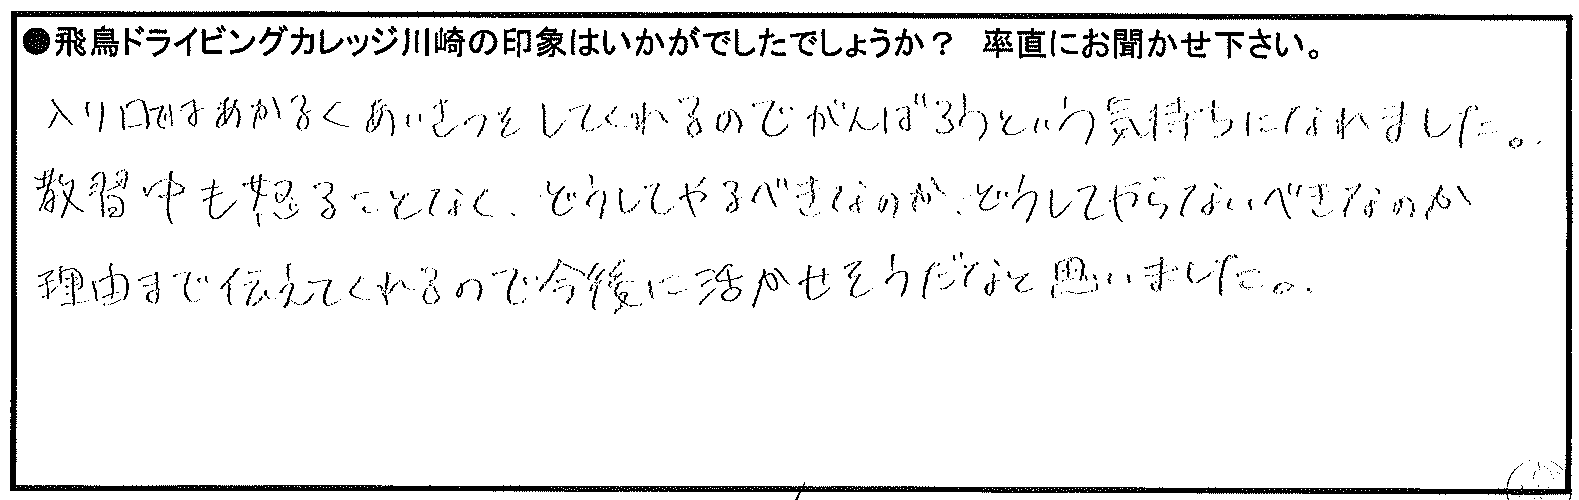 ●飛鳥ドライビングカレッジ川崎の印象はいかがでしたでしょうか？ 率直にお聞かせ下さい。
入り口ではあかるくあいさつをしてくれるのでがんばろうという気持ちになれました。
教習中も怒ることなく、どうしてやるべきなのか、どうしてやらないべきなのか
理由まで伝えてくれるので今後に活かせそうだなと思いました。